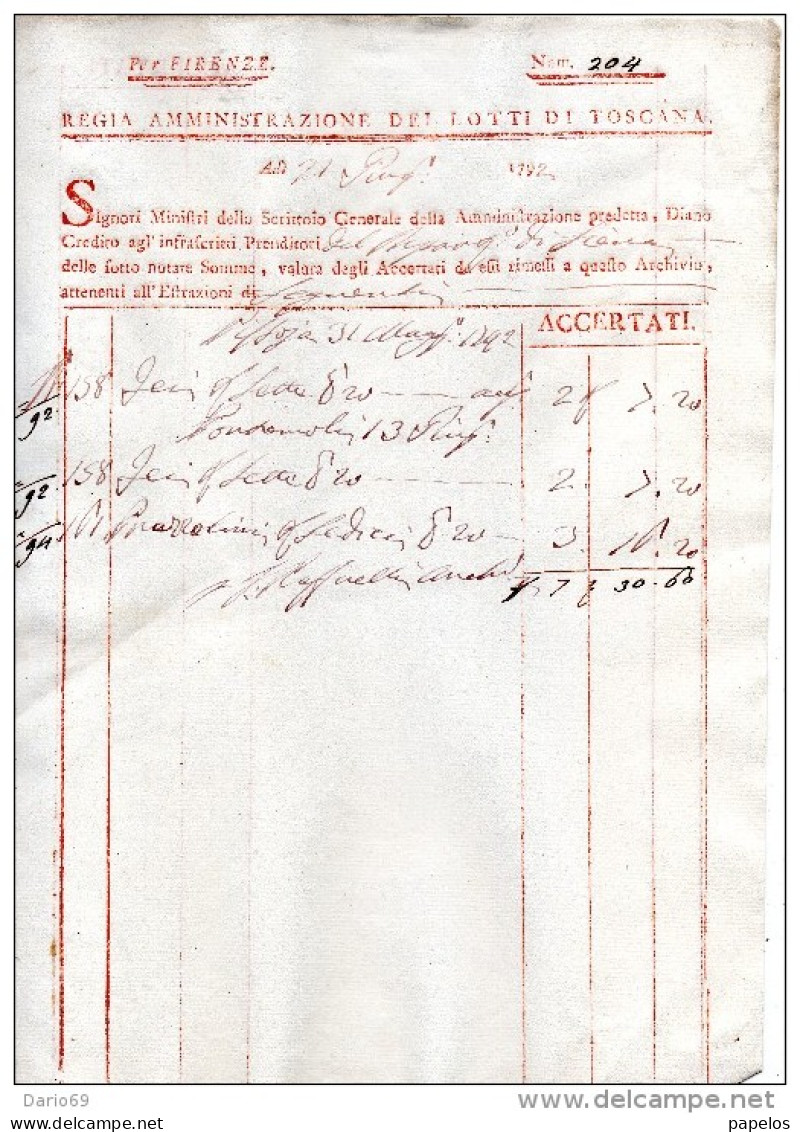 Per FIRENZE.
Num. 204
REGIA AMMINISTRAZIONE DEI LOTTI DI TOSCANA.
Adì 21 Giug.º 1792
Signori Miniſtri dello Scrittoio Generale della Amminiſtrazione predetta, Diano
Credito agl' infraſcritti Prenditori di Siena
delle ſotto notate Somme, valuta degli Accertati da eſſi rimeſſi a queſto Archivio,
attenenti all' Eſtrazioni di
ACCERTATI.
Pistoja 31 Magg.º 1792
92 158 Sette 20 2 7.20
13 Giug.º
92 158 Sette 20 2. 7.20
94 161 Sedici 20 3. 16.20
7 30.60
Dario69
www.delcampe.net
papelos